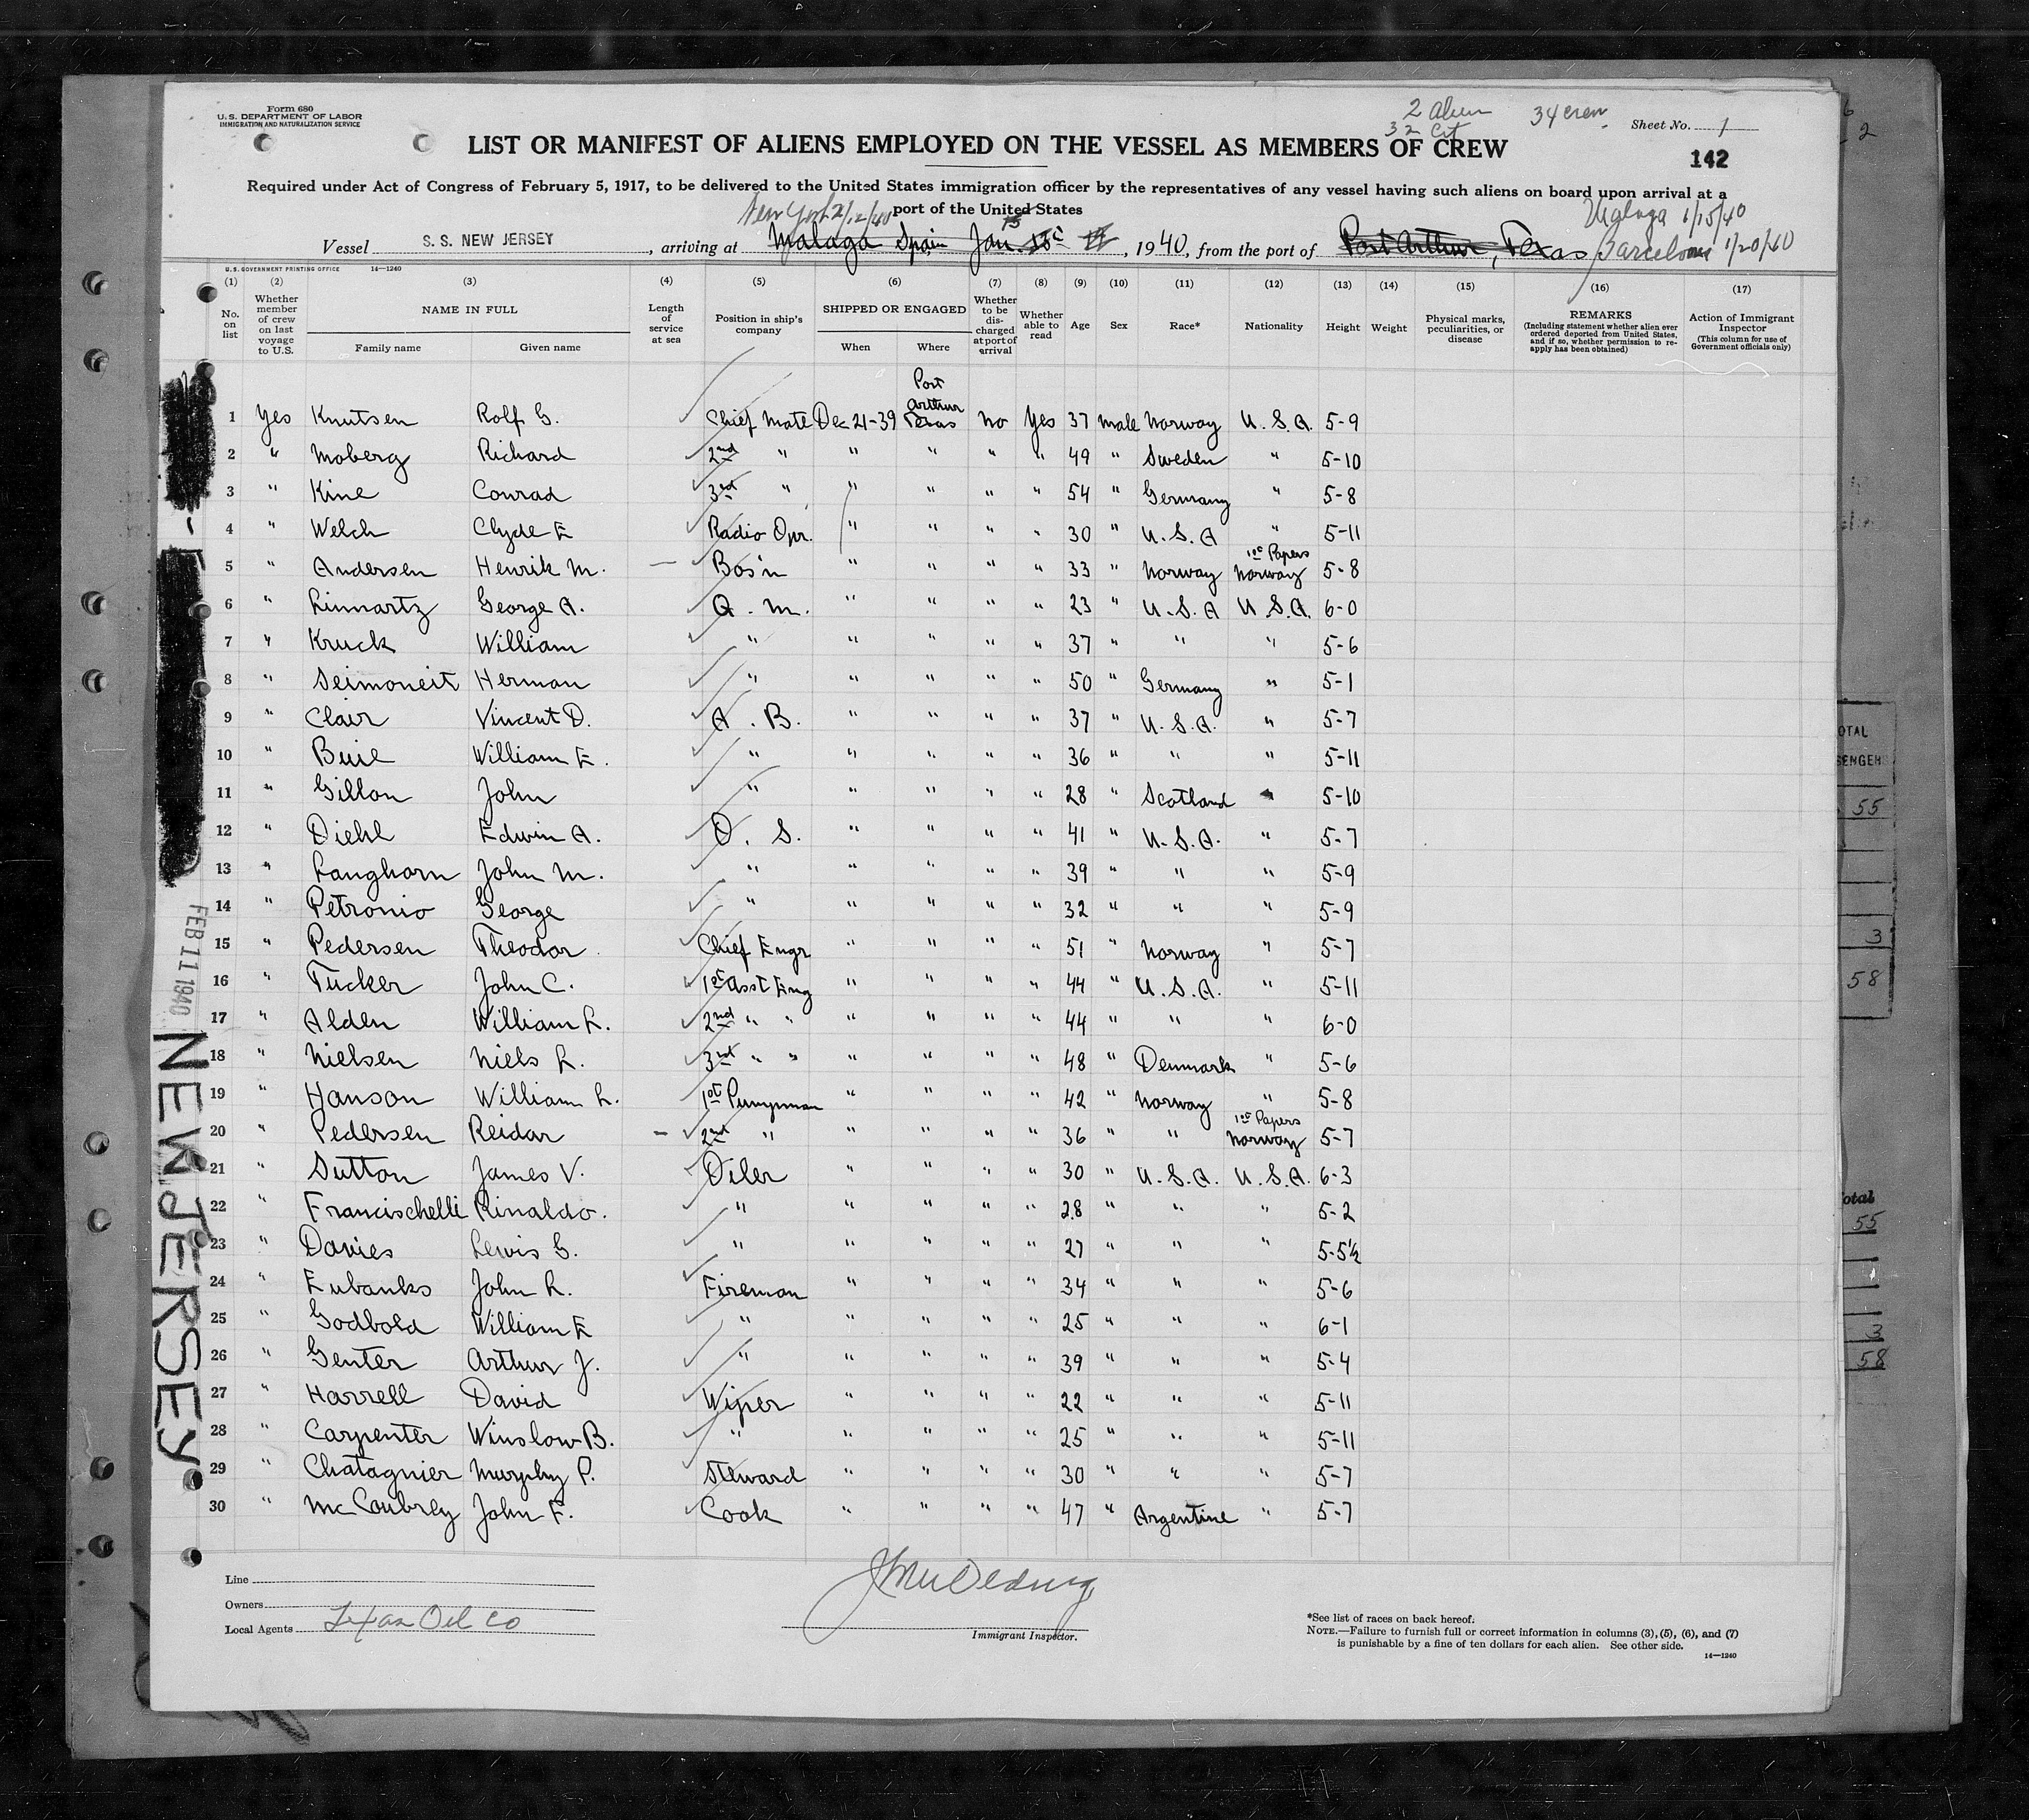 Form 680
U. S. DEPARTMENT OF LABOR
IMMIGRATION AND NATURALIZATION SERVICE
2 Alien 34 crew
32 Cit
Sheet No. 1
LIST OR MANIFEST OF ALIENS EMPLOYED ON THE VESSEL AS MEMBERS OF CREW
142
Required under Act of Congress of February 5, 1917, to be delivered to the United States immigration officer by the representatives of any vessel having such aliens on board upon arrival at a
port of the United States
New York 2/12/40 Malaga 1/15/40
Vessel S. S. NEW JERSEY, arriving at Malaga Spain Jan. , 1940, from the port of Port Arthur, Texas Barcelona 1/20/40
U. S. GOVERNMENT PRINTING OFFICE 14—1240
(1) (2) (3) (4) (5) (6) (7) (8) (9) (10) (11) (12) (13) (14) (15) (16) (17)
No. on list Whether member of crew on last voyage to U.S. NAME IN FULL Family name Given name Length of service at sea Position in ship's company SHIPPED OR ENGAGED When Where Whether to be discharged at port of arrival Whether able to read Age Sex Race* Nationality Height Weight Physical marks, peculiarities, or disease REMARKS (Including statement whether alien ever ordered deported from United States, and if so, whether permission to reapply has been obtained) Action of Immigrant Inspector (This column for use of Government officials only)
1 Yes Knutsen Rolf G. Chief Mate Dec 21-39 Port Arthur Texas no Yes 37 male Norway U. S. A. 5-9
2 " Moberg Richard 2nd " " " " " 49 " Sweden " 5-10
3 " Kine Conrad 3rd " " " " " 54 " Germany " 5-8
4 " Welch Clyde E Radio Opr. " " " " 30 " U. S. A " 5-11
5 " Andersen Henrik M. — Bos'n " " " " 33 " Norway 1st Papers Norway 5-8
6 " Linnartz George A. Q. M. " " " " 23 " U. S. A U. S. A. 6-0
7 " Kruck William " " " " " 37 " " " 5-6
8 " Seimoneit Herman " " " " " 50 " Germany " 5-1
9 " Clair Vincent D. A. B. " " " " 37 " U. S. A. " 5-7
10 " Buie William E. " " " " " 36 " " " 5-11
11 " Gillon John " " " " " 28 " Scotland " 5-10
12 " Diehl Edwin A. O. S. " " " " 41 " U. S. A. " 5-7
13 " Langhorn John M. " " " " " 39 " " " 5-9
14 " Petronio George " " " " " 32 " " " 5-9
15 " Pedersen Theodor Chief Engr " " " " 51 " Norway " 5-7
16 " Tucker John C. 1st Asst Eng " " " " 44 " U. S. A. " 5-11
17 " Alden William L. 2nd " " " " " " 44 " " " 6-0
18 " Nielsen Niels L. 3rd " " " " " " 48 " Denmark " 5-6
19 " Hanson William L. 1st Pumpman " " " " 42 " Norway " 5-8
20 " Pedersen Reidar — 2nd " " " " " 36 " " 1st Papers Norway 5-7
21 " Sutton James V. Oiler " " " " 30 " U. S. A. U. S. A. 6-3
22 " Francischelli Rinaldo. " " " " " 28 " " " 5-2
23 " Davies Lewis G. " " " " " 27 " " " 5-5½
24 " Eubanks John L. Fireman " " " " 34 " " " 5-6
25 " Godbold William E " " " " " 25 " " " 6-1
26 " Genter Arthur J. " " " " " 39 " " " 5-4
27 " Harrell David Wiper " " " " 22 " " " 5-11
28 " Carpenter Winslow B. " " " " " 25 " " " 5-11
29 " Chatagnier Murphy P. Steward " " " " 30 " " " 5-7
30 " McCoubrey John F. Cook " " " " 47 " Argentine " 5-7
FEB 11 1940
NEW JERSEY
Line
Owners
Local Agents Texas Oil Co
Immigrant Inspector.
*See list of races on back hereof.
NOTE.—Failure to furnish full or correct information in columns (3), (5), (6), and (7)
is punishable by a fine of ten dollars for each alien. See other side.
14—1240
55
3
58
55
3
58